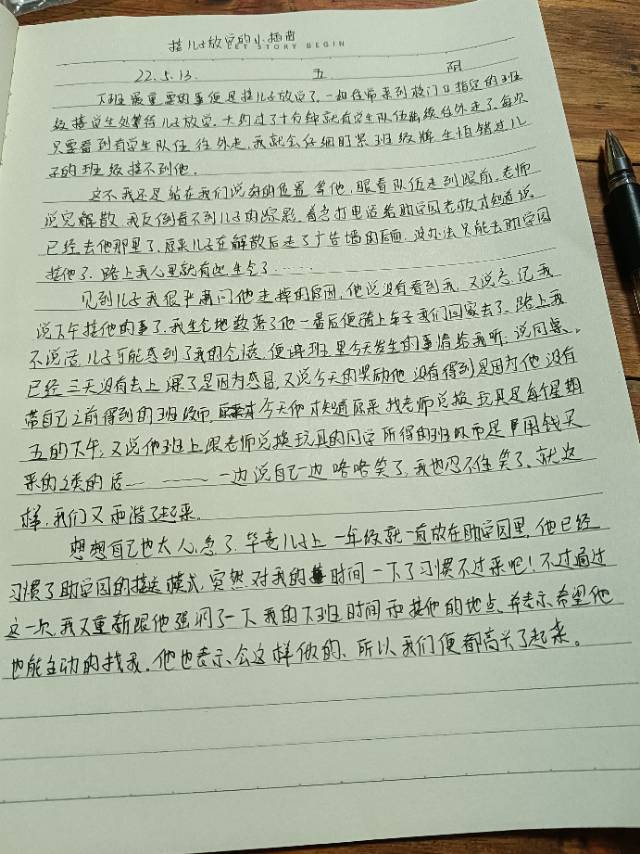 接儿子放学的小插曲
LET STORY BEGIN
22.5.13. 五 阴
下班最重要的事便是接儿子放学了,一如往常来到校门口指定的班
级接学生处等待儿子放学,大约过了十分钟就有学生队伍陆续往外走了,每次
只要看到有学生队伍往外走,我就会仔细盯紧班级牌生怕错过儿
子的班级接不到他。
这不我还是站在我们说好的位置等他,眼看队伍走到眼前,老师
说完解散,我反倒看不到儿子的踪影,着急打电话给助学园老板才知道说
已经去他那里了,原来儿子在解散后走了广告墙的后面,没办法只能去助学园
接他了,路上我心里就有些生气了……
见到儿子我很严肃问他走掉的原因,他说没有看到我,又说忘记我
说下午接他的事了,我生气地数落了他一番后便骑上车子我们回家去了,路上我
不说话,儿子可能感到了我的气愤,便讲班里今天发生的事情给我听:说同桌、
已经三天没有去上课了是因为感冒,又说今天的奖励他没有得到是因为他没有
带自己之前得到的班级币,今天他才知道原来找老师兑换玩具是每个星期
五的下午;又说他班上跟老师兑换玩具的同学所得的班级币是用钱买
来的之类的话——————一边说自己一边咯咯笑了,我也忍不住笑了,就这
样,我们又和谐了起来。
想想自己也太心急了,毕竟儿子上一年级就一直放在助学园里,他已经
习惯了助学园的接送模式,突然对我的时间一下子习惯不过来吧!不过通过
这一次,我又重新跟他强调了一下我的下班时间和接他的地点,并表示希望他
也能主动的找我,他也表示会这样做的,所以我们便都高兴了起来。